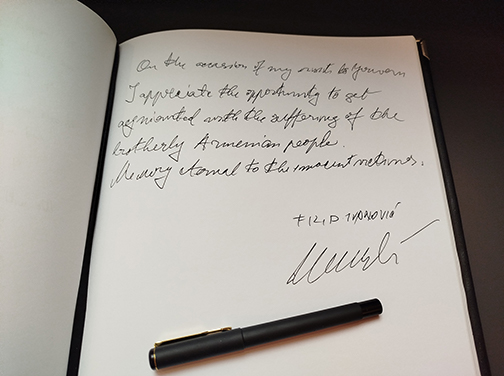 On the occasion of my visit to Yerevan
I appreciate the opportunity to get
aquianted with the suffering of the
brotherly Armenian people.
Memory eternal to the innocent victims.
FILIP IVANOVIĆ